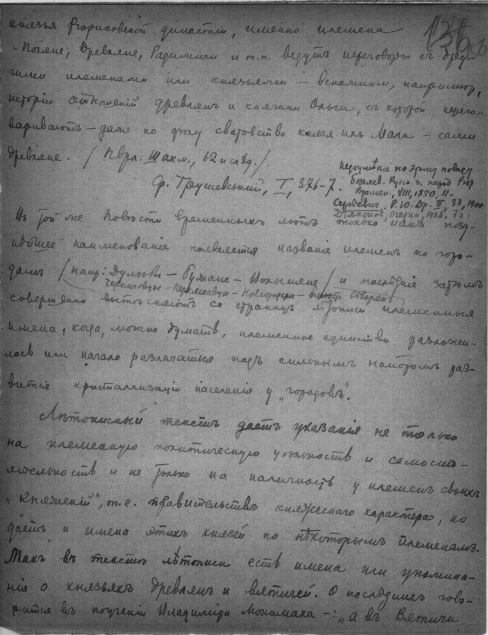 136
князья Рюриковской династіи, именно племена
– Поляне, Древляне, Радимичи и т.п. ведутъ переговоры съ дру-
гими племенами или князьями – вспомним, например,
исторію отношеній древлянъ и княгини Ольги, съ которой перего-
вариваютъ – даже по делу сватовство князя ихъ Мала – сами
древляне. / Лавр. Шахм., 62 и слѣд./.
Ср. Грушевський, I, 376-7.
VIII, 1850, II.
Сергѣевич Р. Ю. Др. II, 33, 1900
Дьяконов, очерки, 1908, 73.
Въ той же Повѣсти временныхъ лѣтъ только какъ позд-
нѣйшее наименованіе появляется названіе племенъ по горо-
дамъ / напр: Дулѣбы – Бужане – Волыняне / и послѣднія затѣмъ
совершенно вытѣсняютъ со страницъ лѣтописи племенныя
имена, когда, можно думать, племенное единство разложи-
лось или начало разлагаться подъ сильнымъ напоромъ раз-
витія кристаллизаціи населенія у „городовъ".
Лѣтописный текстъ даетъ указанія не только
на племенную политическую цѣльность и самосто-
ятельность и не только на наличность у племенъ своихъ
„Княженій", т.е. правительствъ княжескаго характера, но
даетъ и имена этихъ князей по нѣкоторымъ племенамъ.
Такъ въ текстѣ лѣтописи есть имена или упомина-
нія о князьяхъ древлянъ и вятичей. О последнихъ гово-
рится въ поученіи Владиміра Мономаха –: „а въ Вятичи